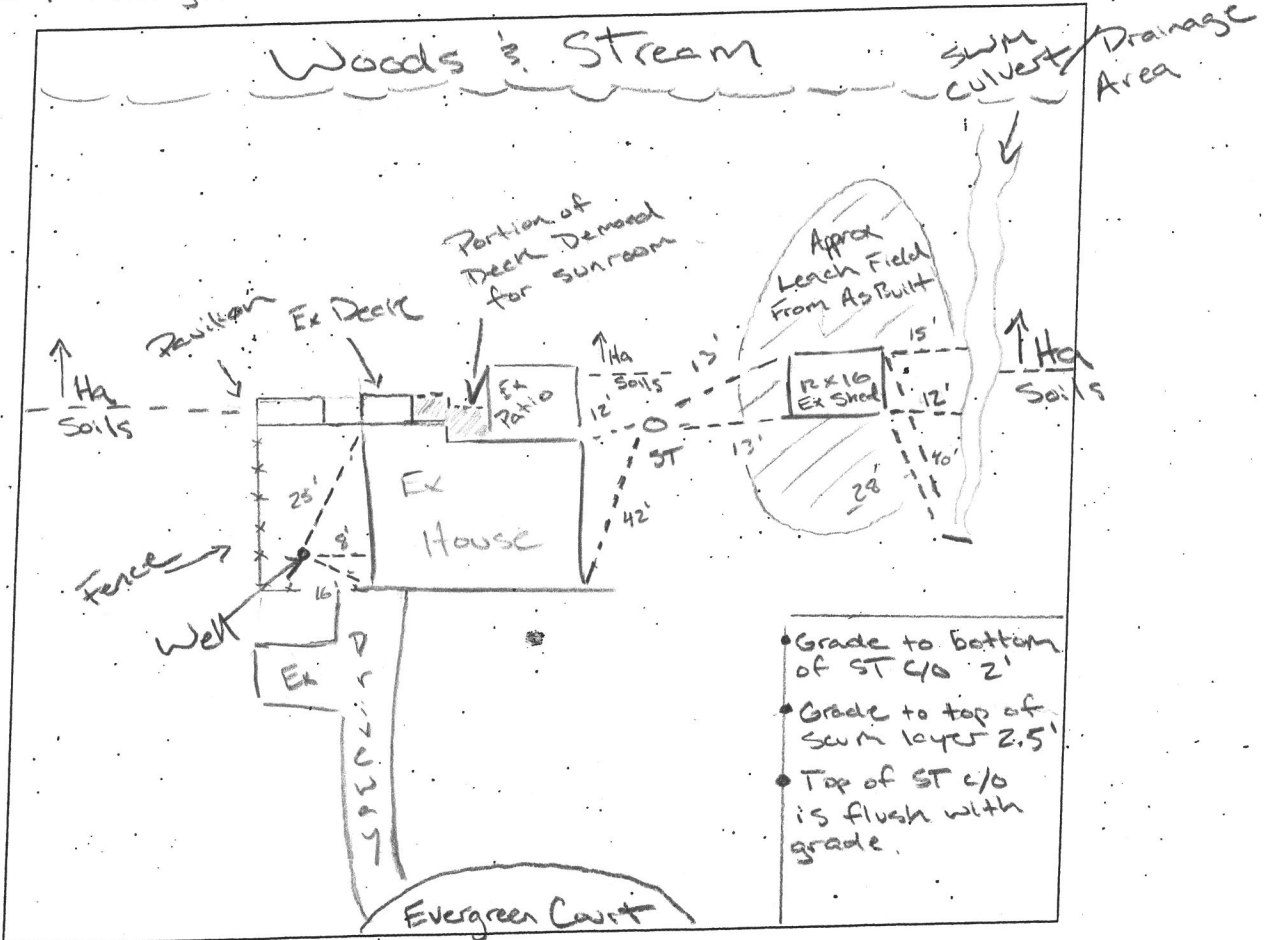 Woods & Stream
SWM
Culvert/Drainage
Area
Portion of
Deck Demoed
for sunroom
Approx
Leach Field
From AsBuilt
Pavilion
Ex Deck
Ha
Soils
Ex
Patio
Ha
Soils
12'
13'
ST
13'
12x16
Ex Shed
15'
12'
Ha
Soils
40'
28'
25'
8'
16'
Ex
House
42'
Fence
Well
Ex
Driveway
Evergreen Court
Grade to bottom
of ST c/o 2'
Grade to top of
scum layer 2.5'
Top of ST c/o
is flush with
grade.